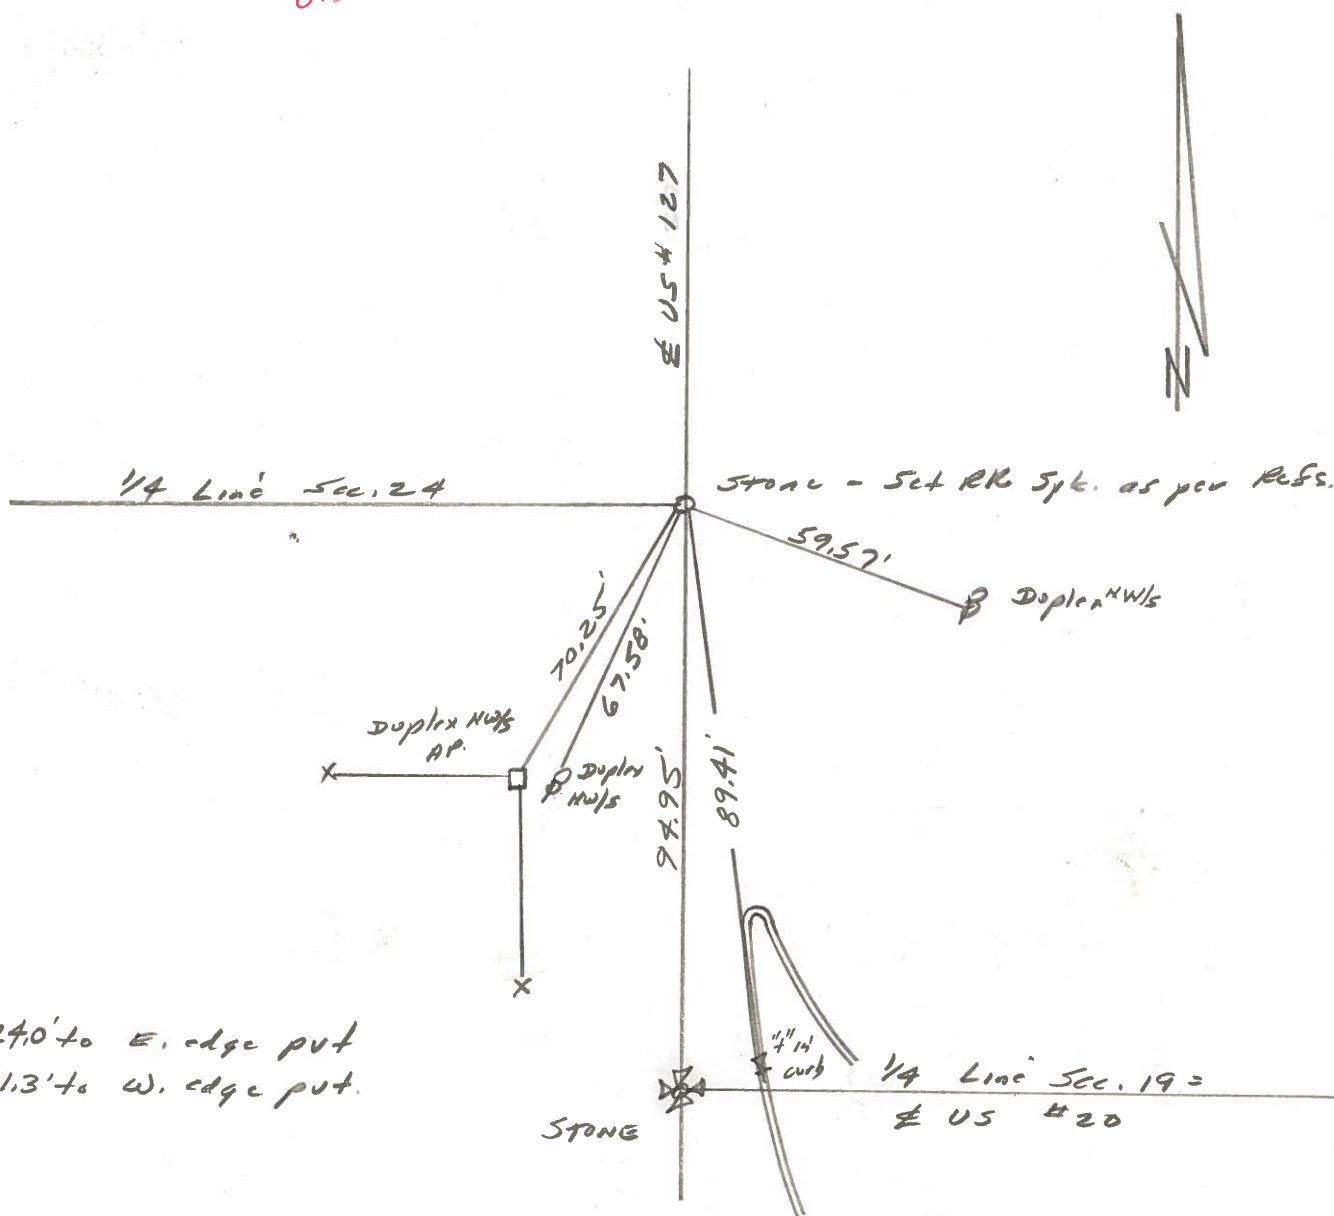 ℄ US # 127
N
1/4 Line Sec. 24
Stone - Set RR Spk. as per Refs.
59.57'
Duplex NW/S
70.25'
67.58'
Duplex NW/S
AP.
Duplex
NW/S
89.41'
"+" in
curb
24.0' to E. edge pvt
1.3' to W. edge pvt.
1/4 Line Sec. 19 =
℄ US #20
STONE